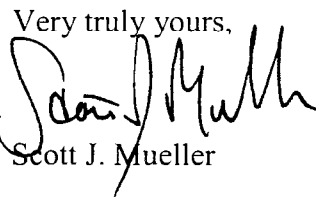 Very truly yours,
Scott J. Mueller
Scott J. Mueller